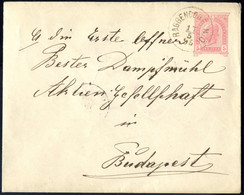 die Erste Ofner
Pester Dampfmühl
Aktien Gesellschaft
in
Budapest